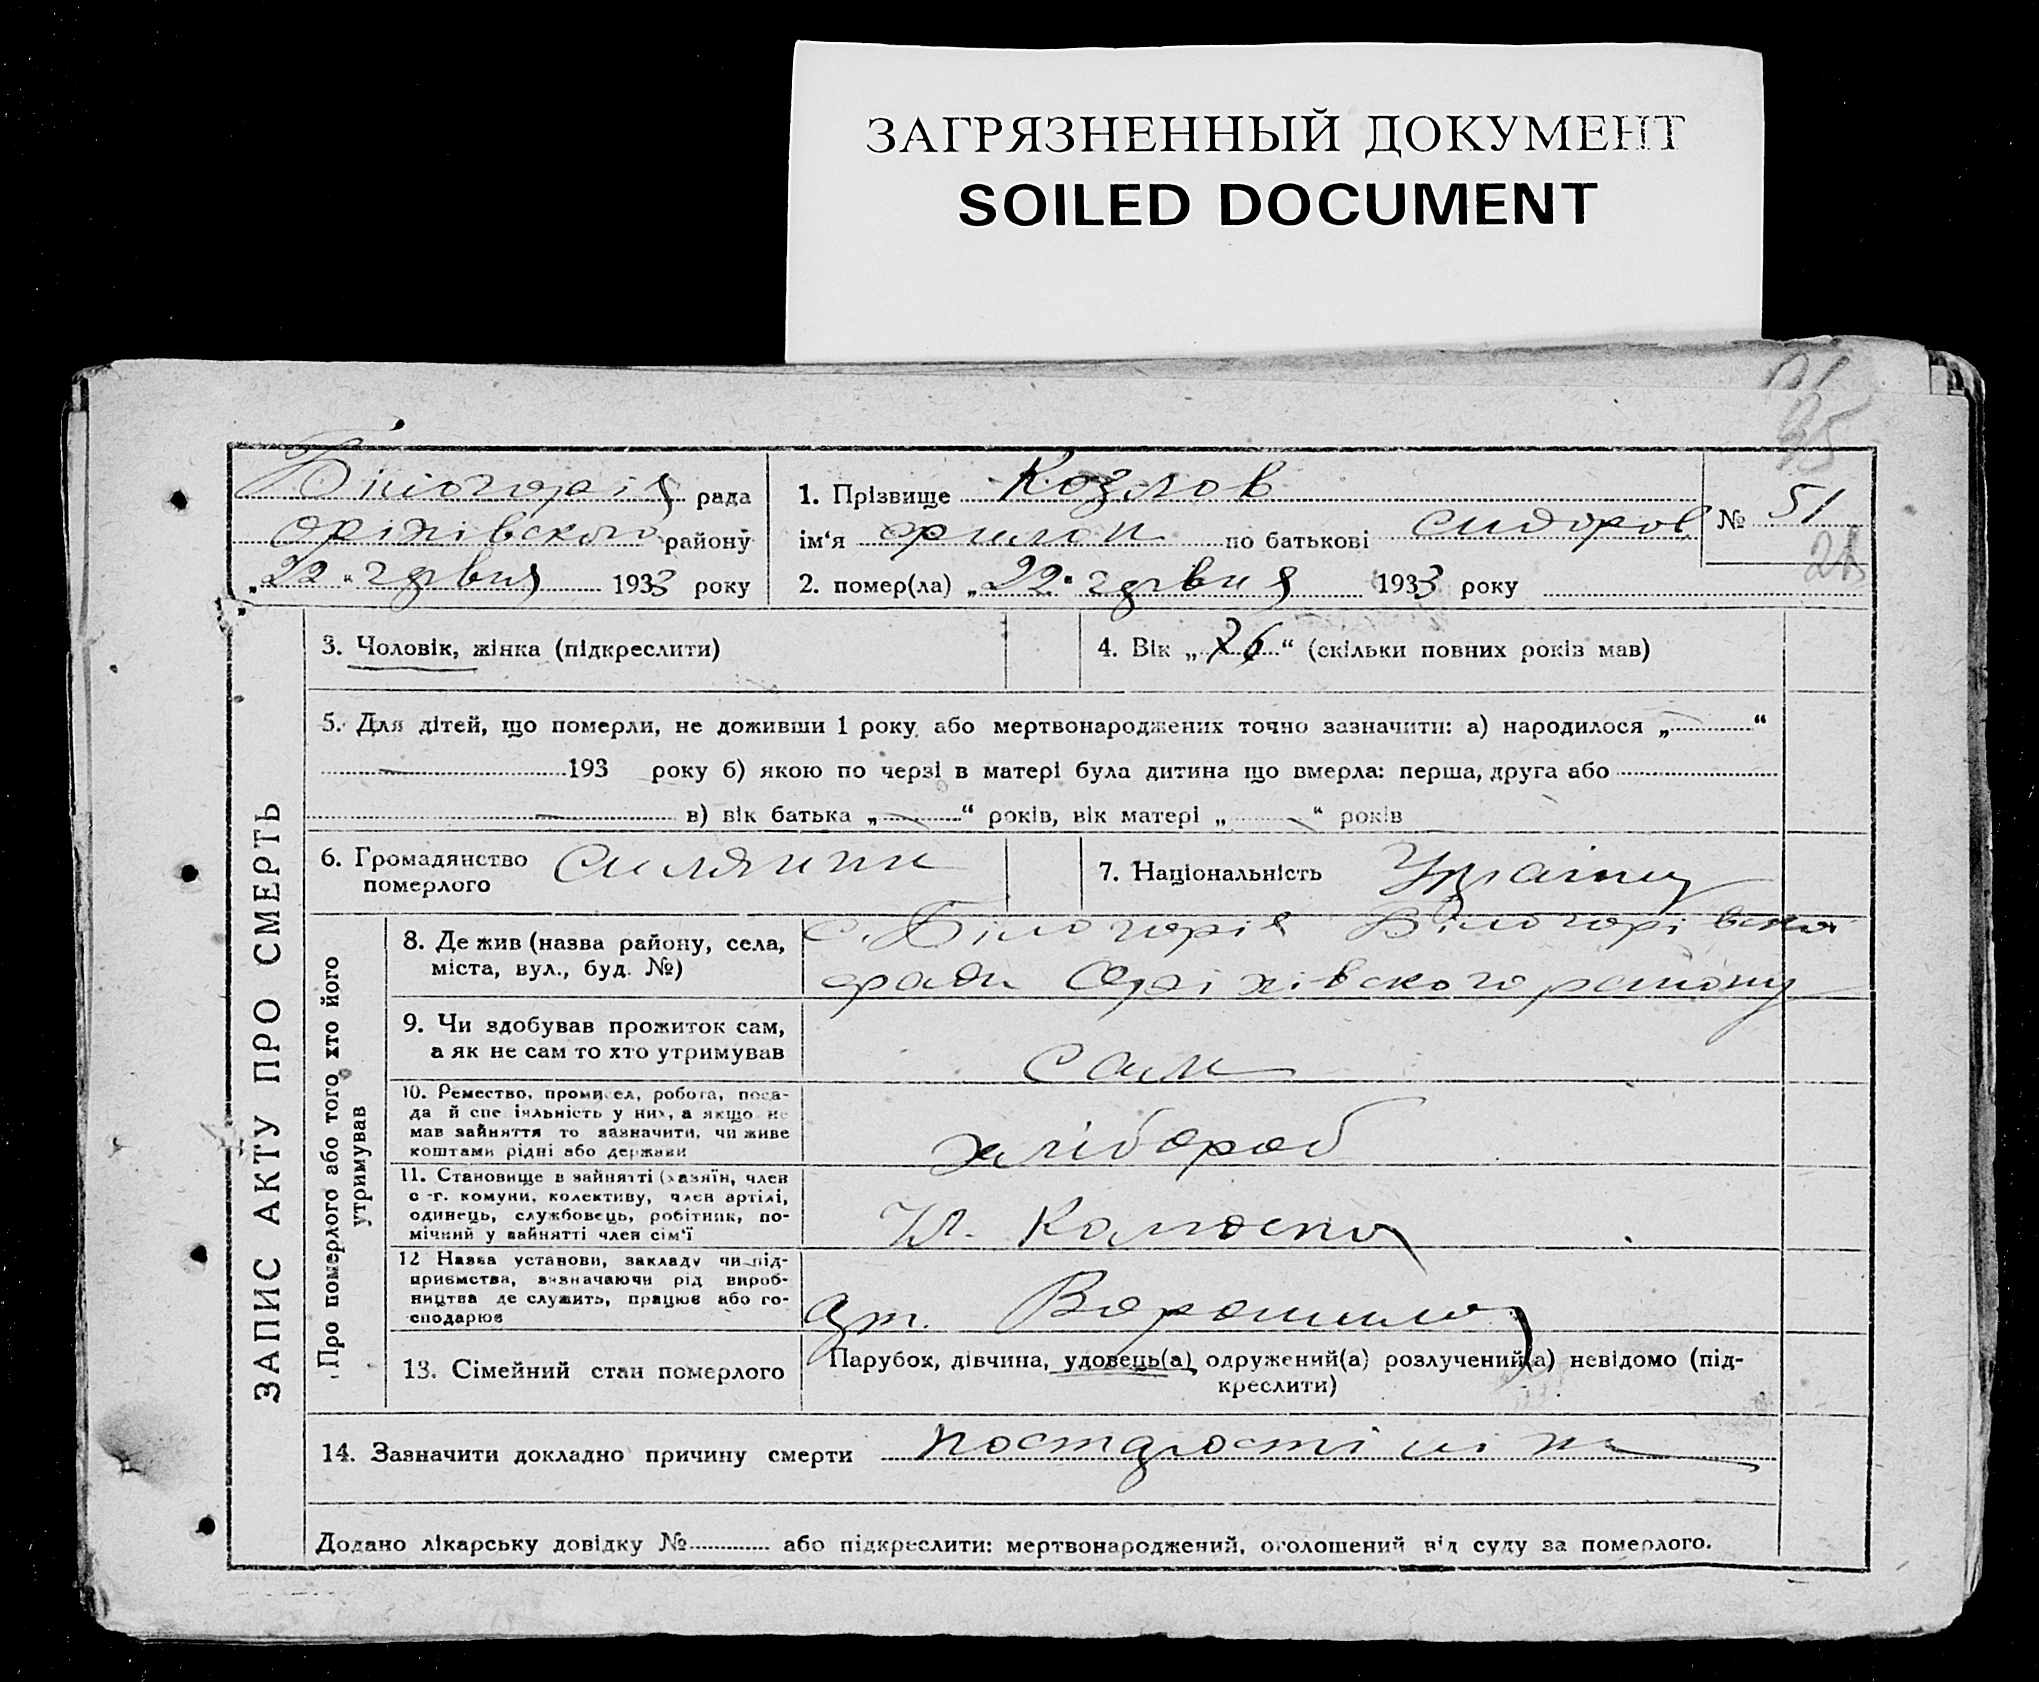 ЗАГРЯЗНЕННЫЙ ДОКУМЕНТ
SOILED DOCUMENT
95
Білогорія рада
Оріхівского району
„22“ червня 1933 року
1. Прізвище Козлов
ім'я Филон по батькові Сидоров
2. помер(ла) „22“ червня 1933 року
№ 51
ЗАПИС АКТУ ПРО СМЕРТЬ
3. Чоловік, жінка (підкреслити)
4. Вік „76“ (скільки повних років мав)
5. Для дітей, що померли, не доживши 1 року або мертвонароджених точно зазначити: а) народилося „ “
193 року б) якою по черзі в матері була дитина що вмерла: перша, друга або
в) вік батька „ “ років, вік матері „ “ років
6. Громадянство померлого Силянин
7. Національність Україн
Про померлого або того хто його утримував
8. Де жив (назва району, села,
міста, вул., буд. №)
с. Білогорія Білогорівско
ради Оріхівского району
9. Чи здобував прожиток сам,
а як не сам то хто утримував
сам
10. Ремество, промисел, робота, поса-
да й спеціяльність у них, а якщо не
мав зайняття то зазначити, чи живе
коштами рідні або держави
хлібороб
11. Становище в зайнятті (хазяїн, член
с.-г. комуни, колективу, член артілі,
одинець, службовець, робітник, по-
мічний у зайнятті член сім'ї
Чл. Колгоспа
12 Назва установи, закладу чи під-
приємства, зазначаючи рід вироб-
ництва де служить, працює або го-
сподарює
арт. Ворошилов
13. Сімейний стан померлого
Парубок, дівчина, удовець(а) одружений(а) розлучений(а) невідомо (під-
креслити)
14. Зазначити докладно причину смерти
Додано лікарську довідку № або підкреслити: мертвонароджений, оголошений від суду за померлого.